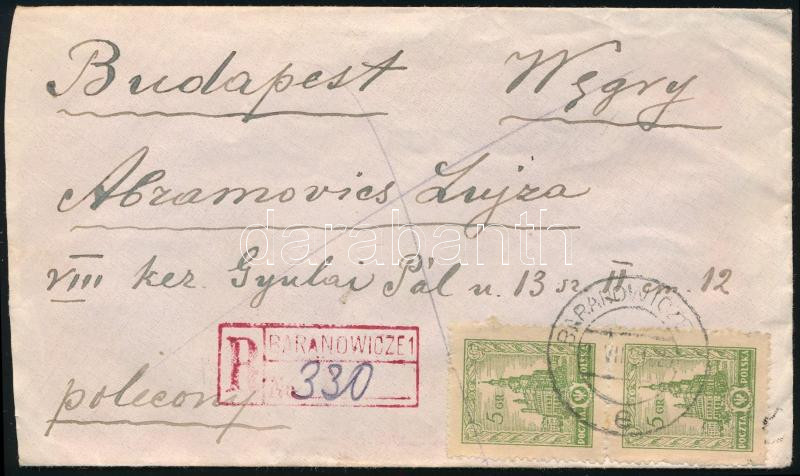 Budapest Węgry
Abramovics Lujza
VIII ker. Gyulai Pál u. 13 sz. II em. 12
polecony
R BARANOWICZE 1
No 330
BARANOWICZE
5 GR POCZTA POLSKA
5 GR POCZTA POLSKA
darabanth